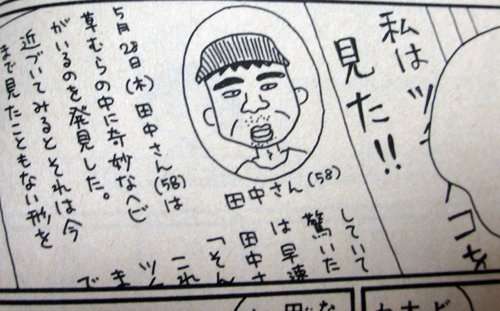 私はツ
コを
見た!!
田中さん(58)
5月28日(木)田中さん(58)は
草むらの中に奇妙なヘビ
がいるのを発見した。
近づいてみるとそれは今
まで見たこともない形を
していて
驚いた
は早速
田中さ
「そん
これ
ツ
ま
で